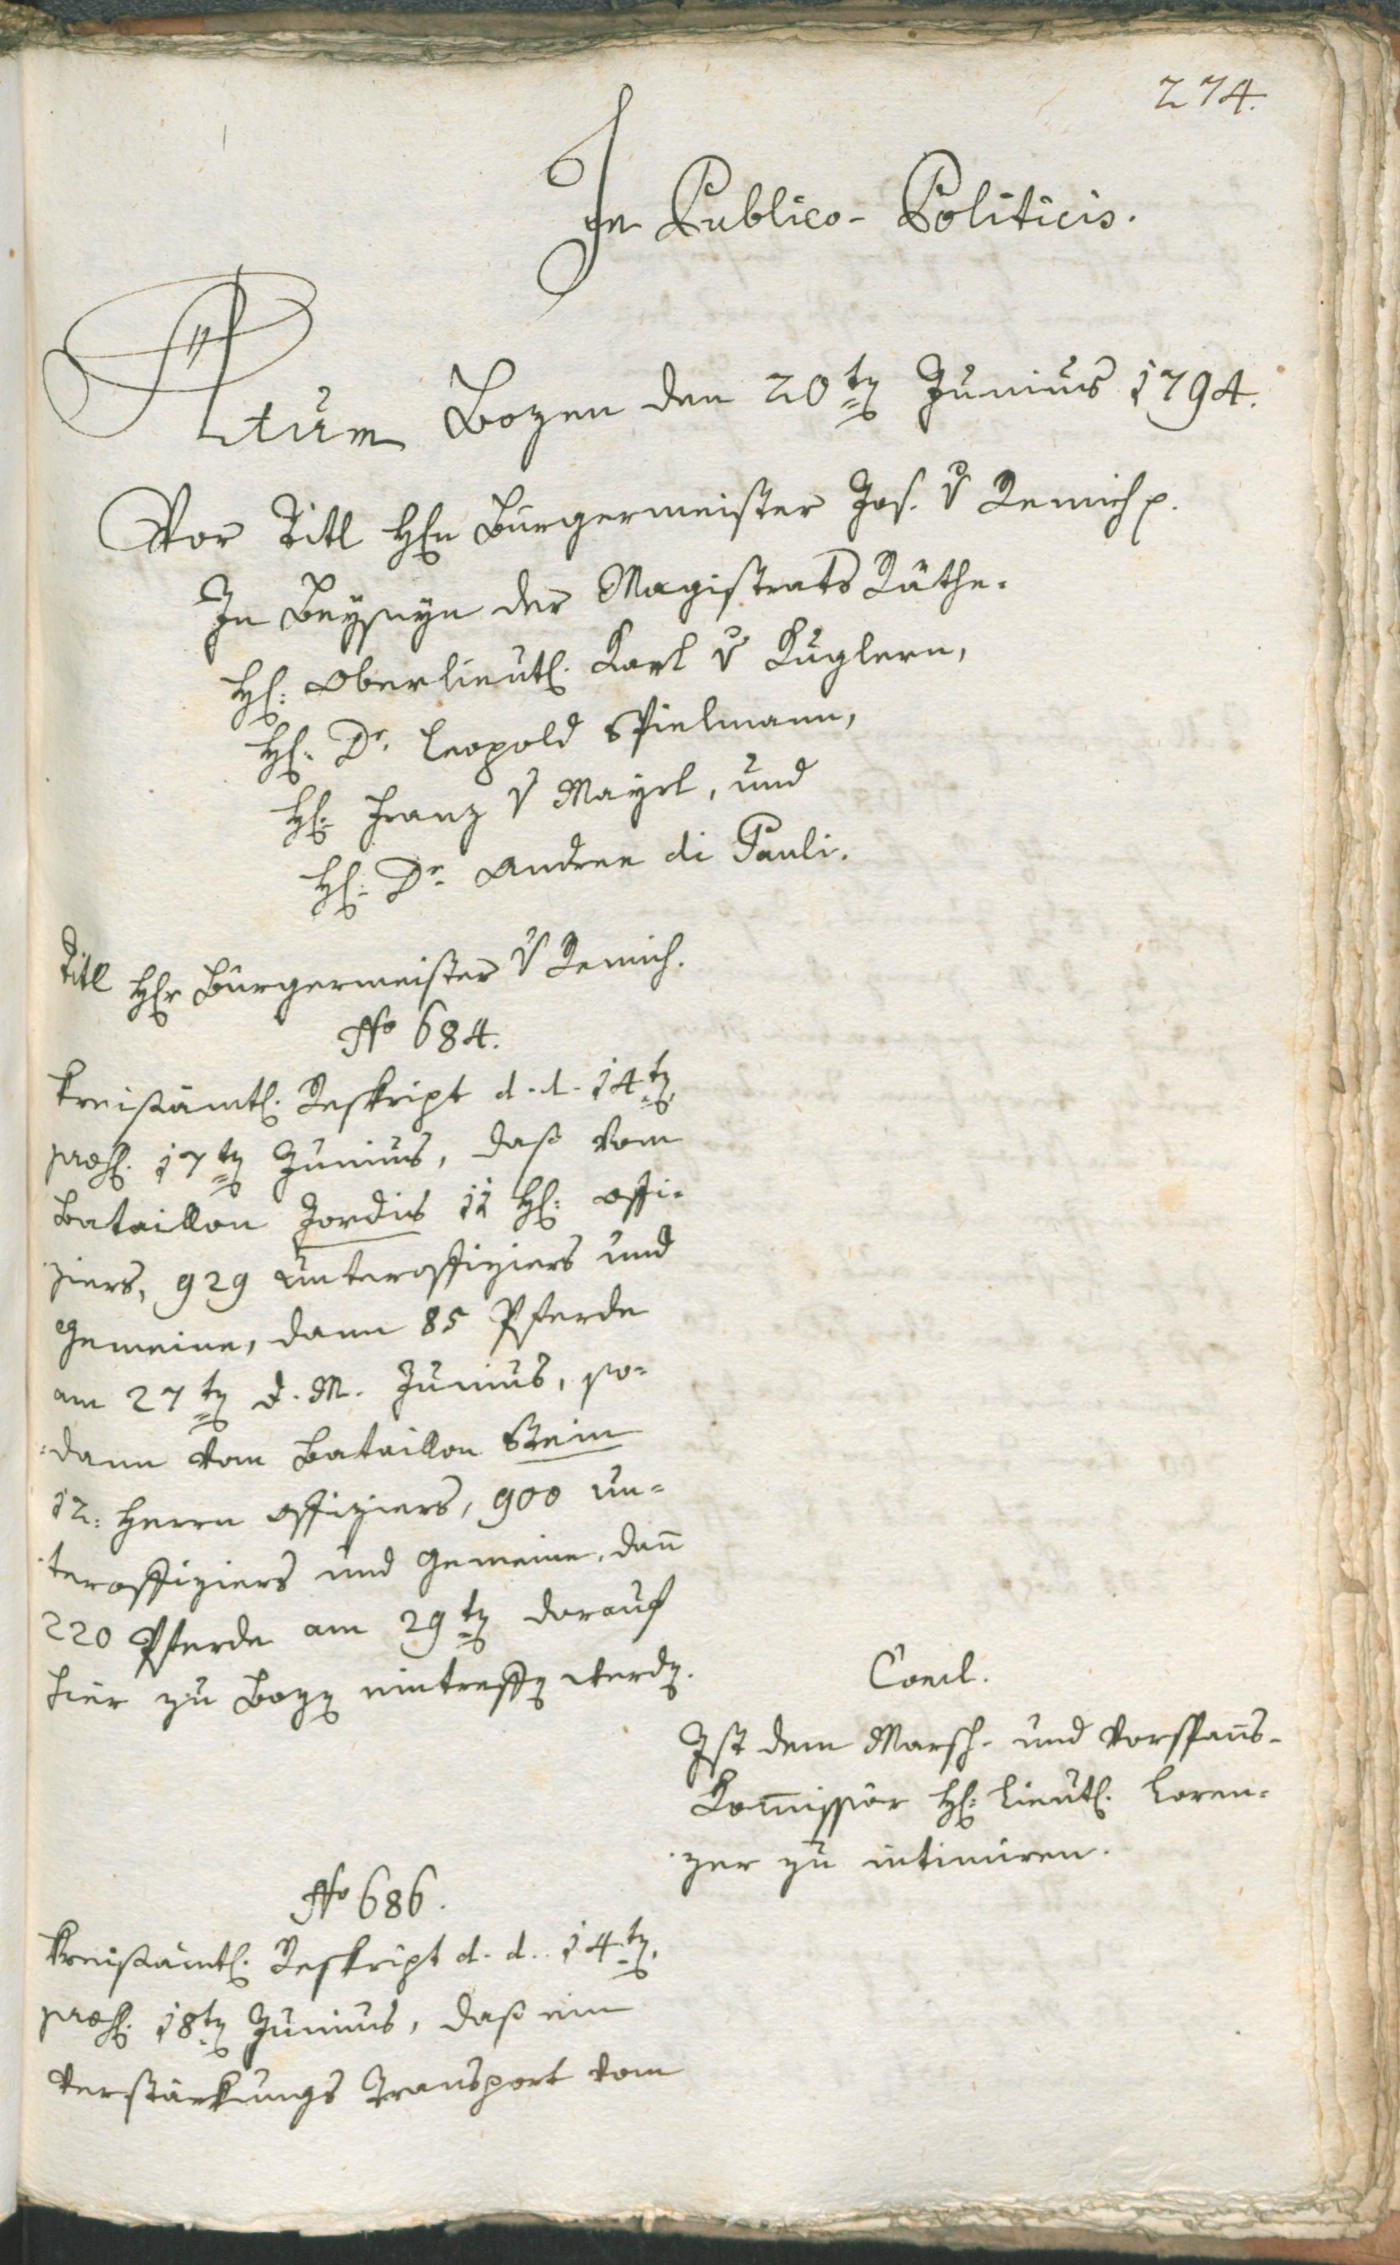 274.
In Publico-Politicis.
Actum Bozen den 20ten Junius 1794.
Vor Titl Hhn Bürgermeister Jos. v Remich p.
In Beyseyn der Magistrats Räthe.
H: Oberlieutl. Karl v Kuglern,
H: Dr. Leopold Spielmann,
H: Franz v Mayrl, und
H: Dr. Andree di Pauli.
Titl Hhr Bürgermeister v Remich.
No 684.
Kreisämtl. Reskript d. d. 14ten
præs. 17ten Junius, daß vom
Bataillon Jordis 12 H: Offi-
ziers, 929 Unteroffiziers und
Gemeine, dann 85 Pferde
am 27ten d. M. Junius, so-
dann vom Bataillon Stein
12: Herrn Offiziers, 900 Un-
teroffiziers und Gemeine, dañ
220 Pferde am 29ten darauf
hier zu Bozen eintreffen werden.
Concl.
Ist dem Marsch- und Vorspañs-
Kom̄issär H: Lieutl. Loren-
zer zu intimiren.
No 686.
Kreisämtl. Reskript d. d. 14ten,
præs. 18ten Junius, daß ein
Verstärkungs Transport vom